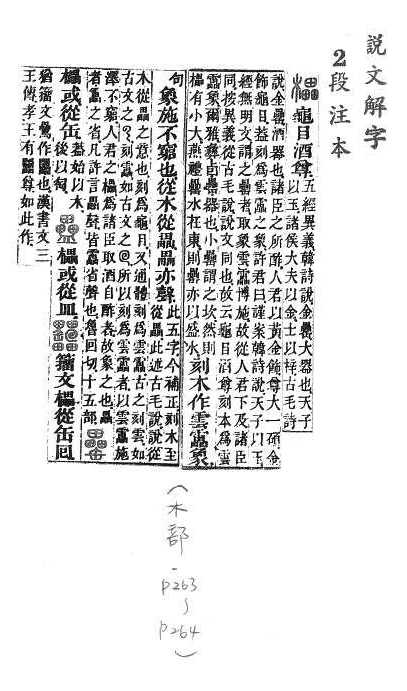 說文解字
2段注本
櫑 龜目酒尊 五經異義韓詩說金罍大器也天子
以玉諸侯大夫以金士以梓古毛詩
說金罍酒器也諸臣之所酢人君以黃金飾尊大一碩金
飾龜目蓋刻爲雲靁之象許君曰謹案韓詩說天子以玉
經無明文謂之罍者取象雲靁博施故從人君下及諸臣
同按異義從古毛說說文同也故云龜目酒尊刻木爲雲
靁象爾雅彝卣罍器也小罍謂之坎然則
櫑有小大燕禮罍水在東則罍亦以盛水 刻木作雲靁象
句 象施不窮也從木從畾畾亦聲 此五字今補正刻木至
從畾此述古毛說說從
木從畾之意也刻爲龜目又通體刻爲雲靁古之刻雲如
古文之刻靁如古文之回所以刻爲雲靁者以雲靁施
澤不窮人君之櫑爲諸臣取酒自酢者故象之也畾
者靁之省凡許言畾聲皆靁省聲也魯回切十五部 罍
櫑或從缶 蓋始以木
後以匋 櫑或從皿 籒文櫑從缶回
猶籒文靁作也漢書文三
王傳孝王有尊如此作
(木部-P263~P264)